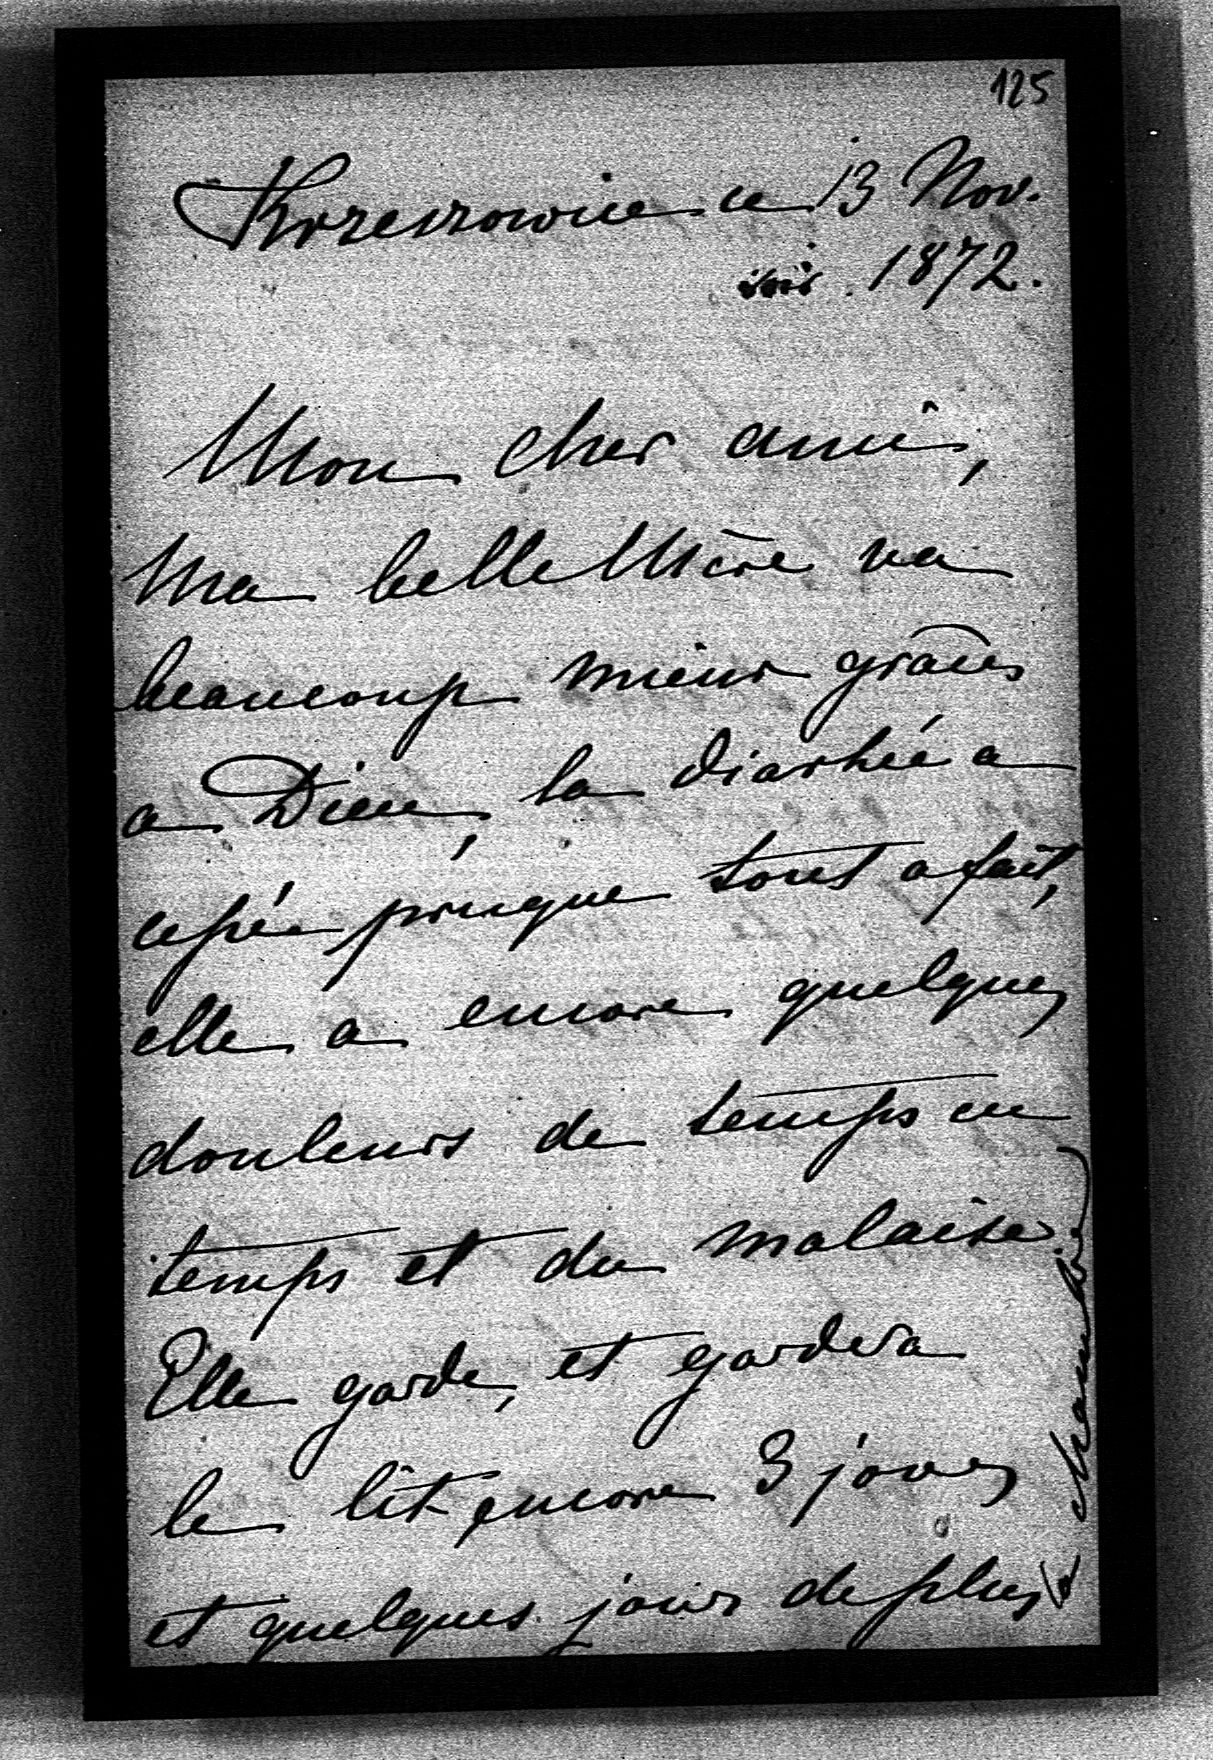 125
Krzeszowice ce 13 Nov.
soir. 1872.
Mon cher ami,
Ma belle Mère va
beaucoup mieux grâces
a Dieu, la diarhée a
cessée presque tout a fait,
elle a encore quelques
douleurs de temps en
temps et du malaise.
Elle garde, et gardera
le lit encore 3 jours
et quelques jours de plus
la chambre